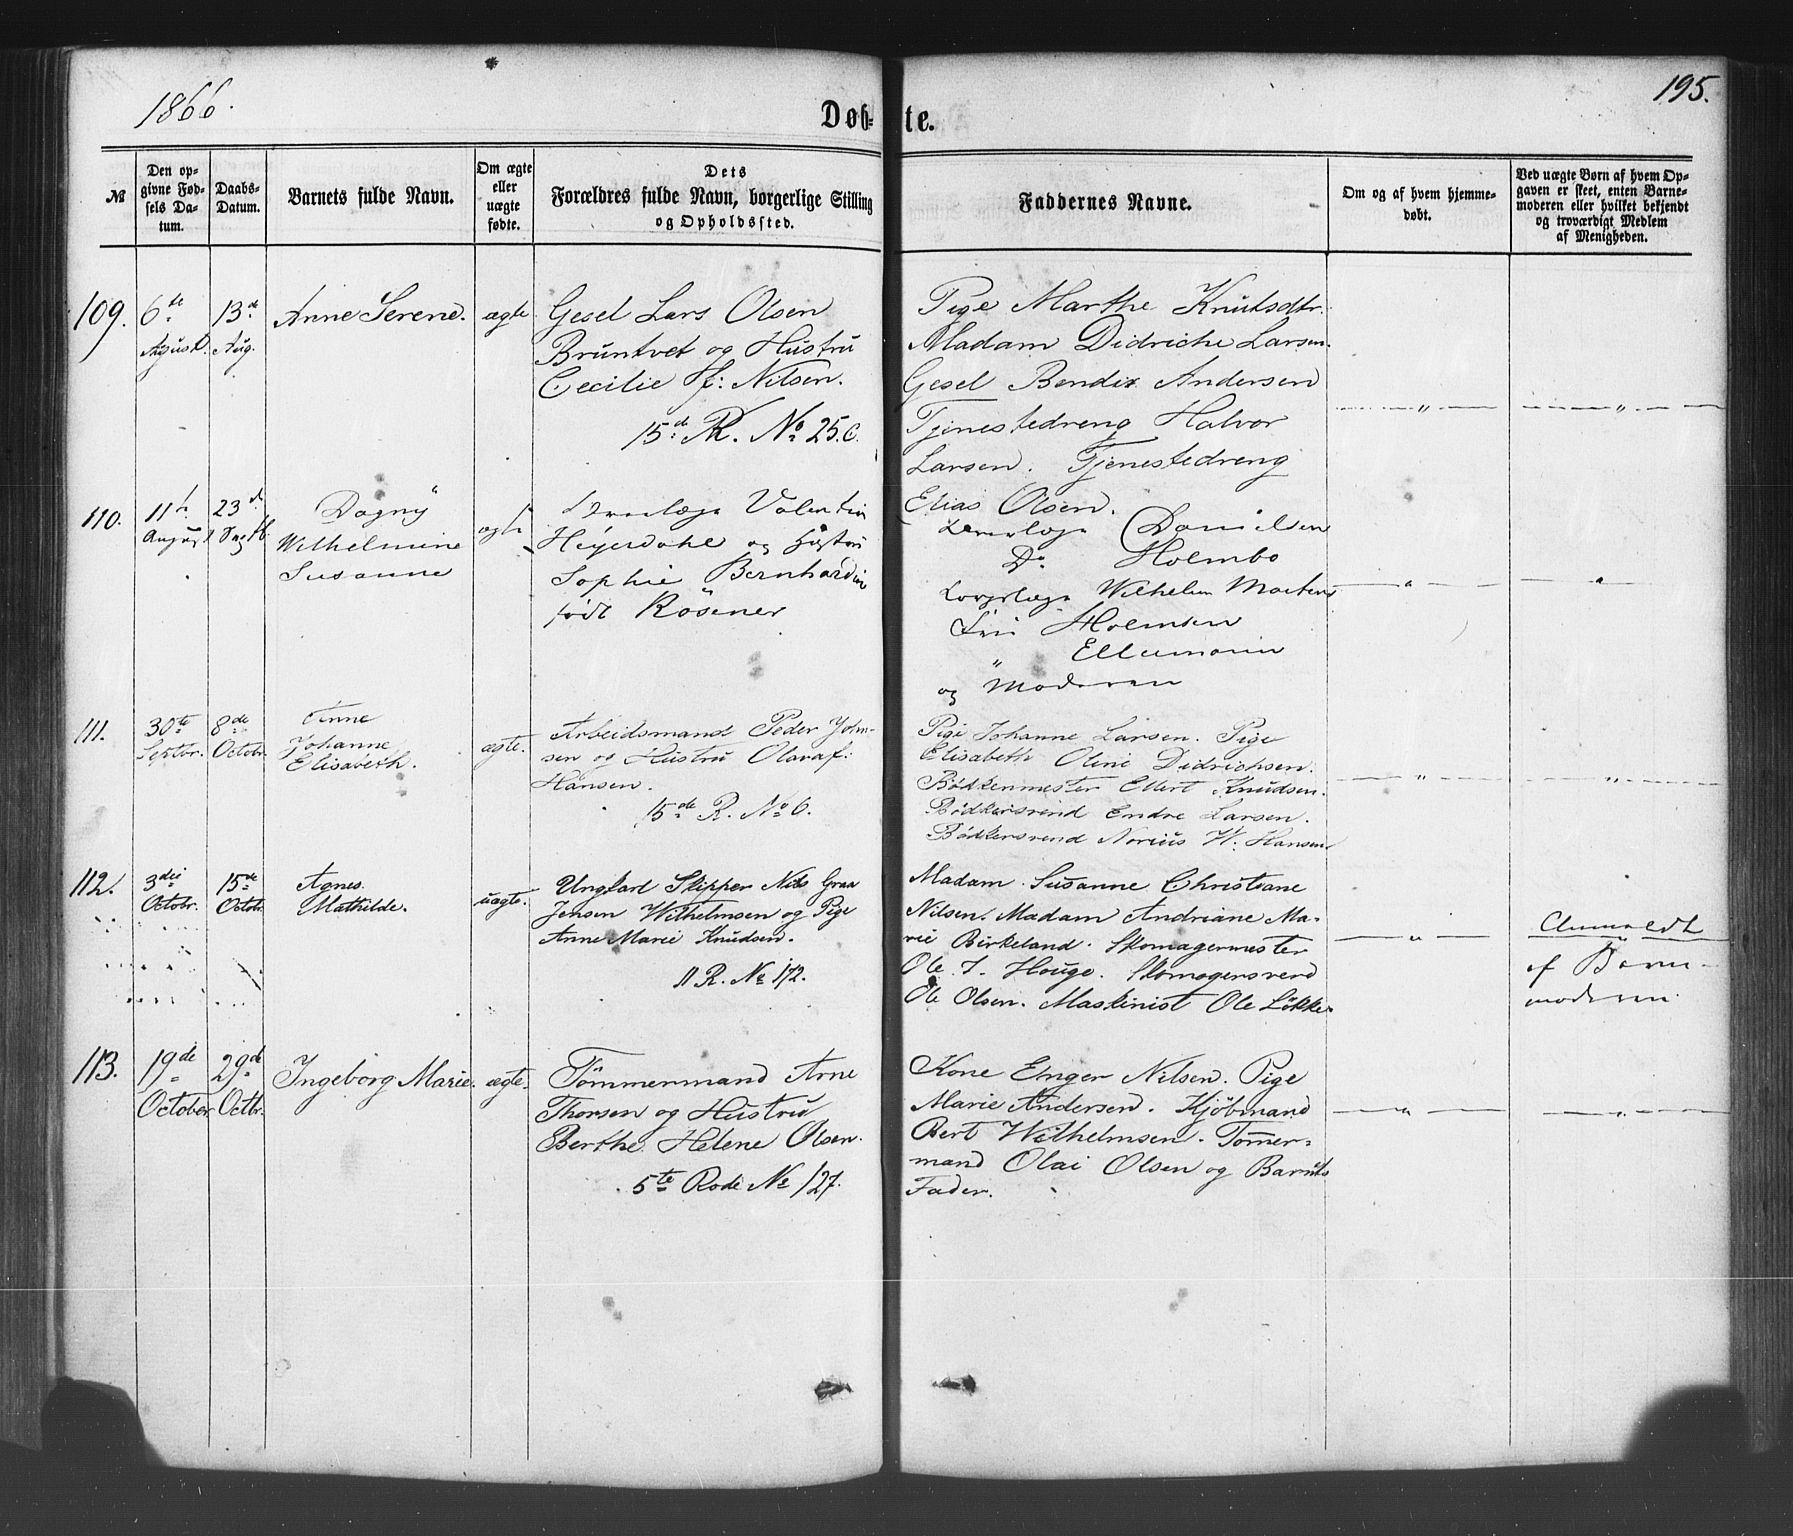 1866.
195.
Døb-te.
№
Den op-
givne Fød-
sels Da-
tum.
Daabs-
Datum.
Barnets fulde Navn.
Om ægte
eller
uægte
fødte.
Dets
Forældres fulde Navn, borgerlige Stilling
og Opholdssted.
Faddernes Navne.
Om og af hvem hjemme-
døbt.
Ved uægte Børn af hvem Op-
gaven er skeet, enten Barne-
moderen eller hvilket bekjendt
og troværdigt Medlem
af Menigheden.
109.
6te
August.
13de
Aug.
Anne Serene.
ægte
Gesel Lars Olsen
Bruntvet og Hustru
Cecilie f: Nilsen.
15de R. No 25.c.
Pige Marthe Knutsdtr.
Madam Didriche Larsen.
Gesel Bendix Andersen
Tjenestedreng Halvor
Larsen. Tjenestedreng
Elias Olsen.
110.
11te
August
23d
Septb.
Dagny
Wilhelmine
Susanne
ægte
Valentin
Heyerdahl og Hustru
Sophie Bernhardine
født Rösener
Danielsen
Do Holmbo
Corpslæge Wilhelm Martens
Holmsen
"
og Moderen
111.
30te
Septbr.
8de
Octobr.
Anne
Johanne
Elisabeth.
ægte.
Arbeidsmand Peder John-
sen og Hustru Olava f:
Hansen.
15de R. No 6.
Pige Johanne Larsen. Pige
Elisabeth Oline Didrichsen.
Bödkermester Ellert Knudsen.
Bödkersvend Endre Larsen.
Bödkersvend Norius W. Hansen.
112.
3die
Octobr.
15de
Octobr.
Agnes
Mathilde.
uægte.
Ungkarl Skipper Nils Graa
Jensen Wilhelmsen og Pige
Anne Marie Knudsen.
11 R. No 172.
Madam Susanne Christiane
Nilsen. Madam Andriane Ma-
rie Birkeland. Skomagermester
Ole J. Houge. Skomagersvend
Ole Olsen. Maskinist Ole Løkke.
Anmeldt
af Barne-
moderen.
113.
19de
October
29de
Octbr.
Ingeborg Marie.
ægte.
Tömmermand Arne
Thorsen og Hustru
Berthe Helene Olsen.
5te Rode No 127.
Kone Enger Nilsen. Pige
Marie Andersen. Kjöbmand
Bert Wilhelmsen. Tömmer-
mand Olai Olsen og Barnets
Fader.